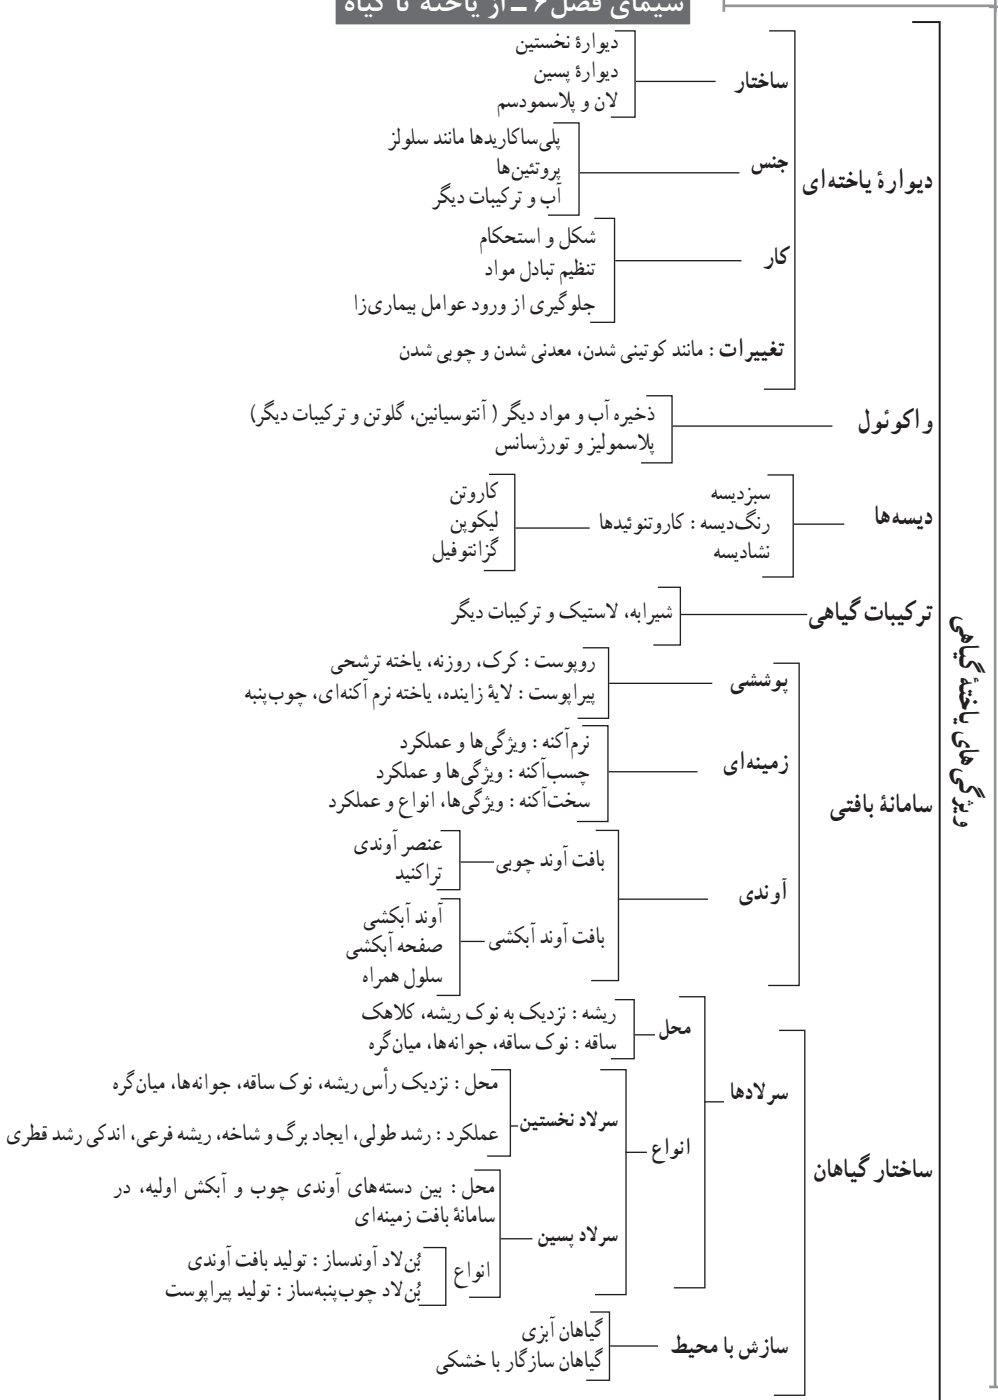 سیمای فصل ۶ ـ از یاخته تا گیاه
ویژگی های یاختهٔ گیاهی
دیوارهٔ یاخته‌ای
ساختار
دیوارهٔ نخستین
دیوارهٔ پسین
لان و پلاسمودسم
جنس
پلی‌ساکاریدها مانند سلولز
پروتئین‌ها
آب و ترکیبات دیگر
کار
شکل و استحکام
تنظیم تبادل مواد
جلوگیری از ورود عوامل بیماری‌زا
تغییرات : مانند کوتینی شدن، معدنی شدن و چوبی شدن
واکوئول
ذخیره آب و مواد دیگر ( آنتوسیانین، گلوتن و ترکیبات دیگر)
پلاسمولیز و تورژسانس
دیسه‌ها
سبزدیسه
رنگ‌دیسه : کاروتنوئیدها
نشادیسه
کاروتن
لیکوپن
گزانتوفیل
ترکیبات گیاهی
شیرابه، لاستیک و ترکیبات دیگر
سامانهٔ بافتی
پوششی
روپوست : کرک، روزنه، یاخته ترشحی
پیراپوست : لایهٔ زاینده، یاخته نرم آکنه‌ای، چوب‌پنبه
زمینه‌ای
نرم‌آکنه : ویژگی‌ها و عملکرد
چسب‌آکنه : ویژگی‌ها و عملکرد
سخت‌آکنه : ویژگی‌ها، انواع و عملکرد
آوندی
بافت آوند چوبی
عنصر آوندی
تراکئید
بافت آوند آبکشی
آوند آبکشی
صفحه آبکشی
سلول همراه
ساختار گیاهان
سرلادها
محل
ریشه : نزدیک به نوک ریشه، کلاهک
ساقه : نوک ساقه، جوانه‌ها، میان‌گره
انواع
سرلاد نخستین
محل : نزدیک رأس ریشه، نوک ساقه، جوانه‌ها، میان‌گره
عملکرد : رشد طولی، ایجاد برگ و شاخه، ریشه فرعی، اندکی رشد قطری
سرلاد پسین
محل : بین دسته‌های آوندی چوب و آبکش اولیه، در
سامانهٔ بافت زمینه‌ای
انواع
بُن‌لاد آوندساز : تولید بافت آوندی
بُن‌لاد چوب‌پنبه‌ساز : تولید پیراپوست
سازش با محیط
گیاهان آبزی
گیاهان سازگار با خشکی